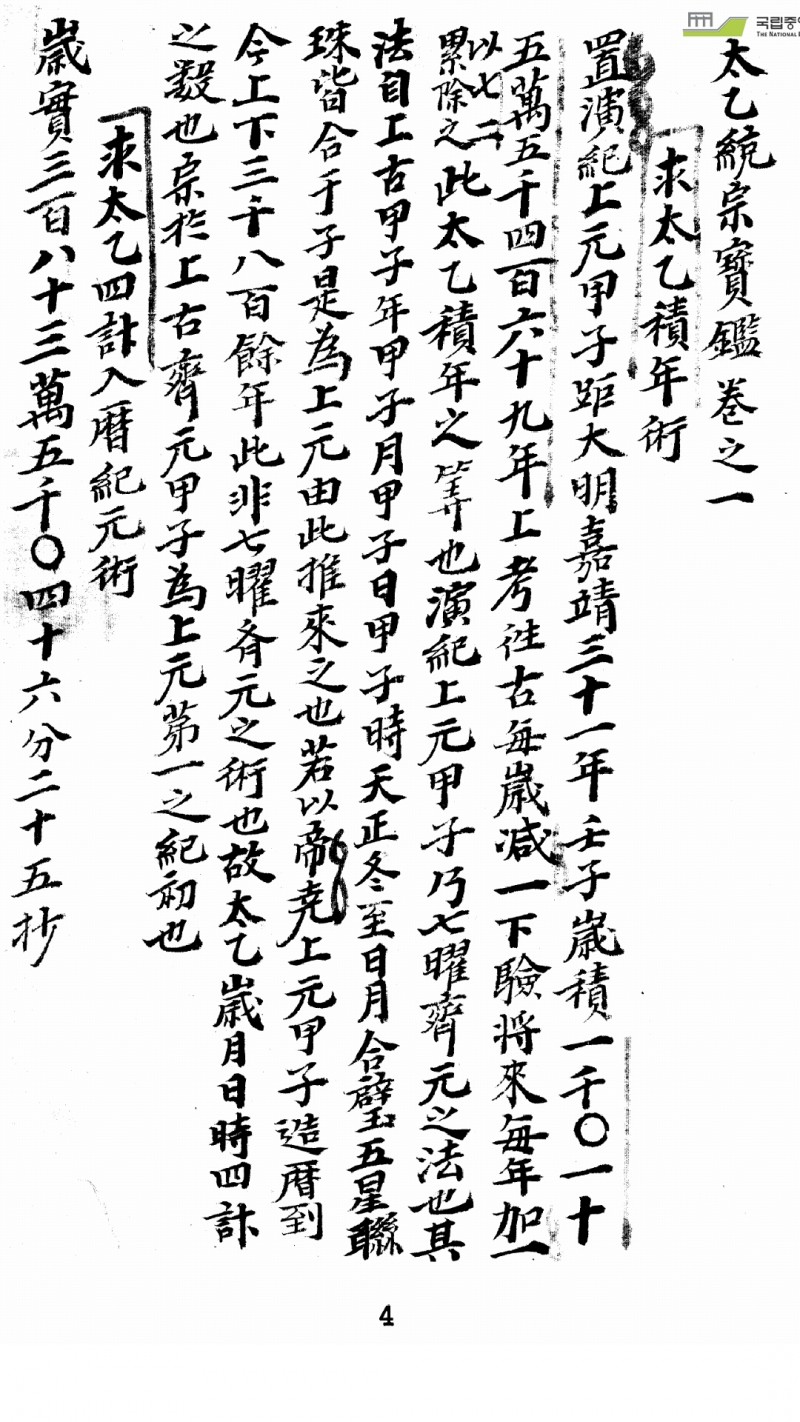 太乙統宗寶鑑卷之一
求太乙積年術
置演紀上元甲子距大明嘉靖三十一年壬子歲積一千〇一十
五萬五千四百六十九年上考徃古每歲减一下驗將來每年加一
以七二累除之此太乙積年之筭也演紀上元甲子乃七曜齊元之法也其
法自上古甲子年甲子月甲子日甲子時天正冬至日月合璧五星聯
珠皆合于子是為上元由此推來之也若以帝堯上元甲子造曆到
今上下三千八百餘年此非七曜齐元之術也故太乙歲月日時四計
之數也宗於上古齊元甲子為上元第一之紀初也
求太乙四計入曆紀元術
歲實三百八十三萬五千〇四十六分二十五抄
국립중
THE NATIONAL
4